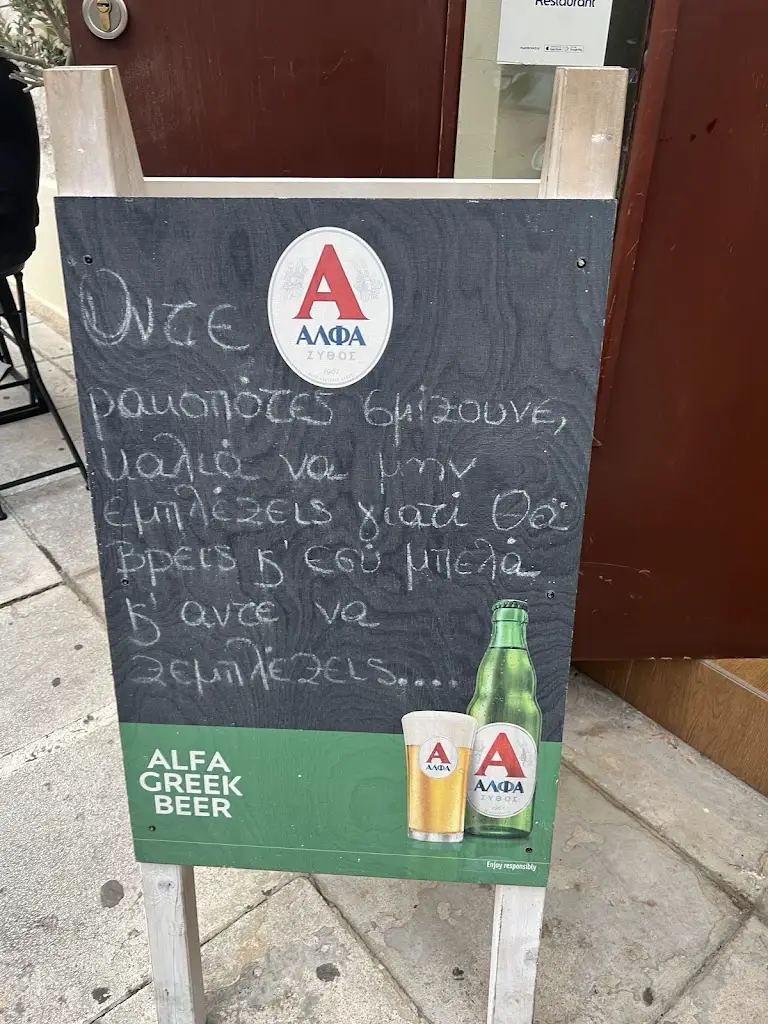 Restaurant
Οντε
Α
ΑΛΦΑ
ΖΥΘΟΣ
1961
ρακοπότες σμίζουνε,
καλιά να μην
εμπλέξεις γιατί θα
βρεις κ' εσύ μπελά
κ' αντε να
ξεμπλέξεις....
ALFA
GREEK
BEER
Α
ΑΛΦΑ
Α
ΑΛΦΑ
ΖΥΘΟΣ
Enjoy responsibly